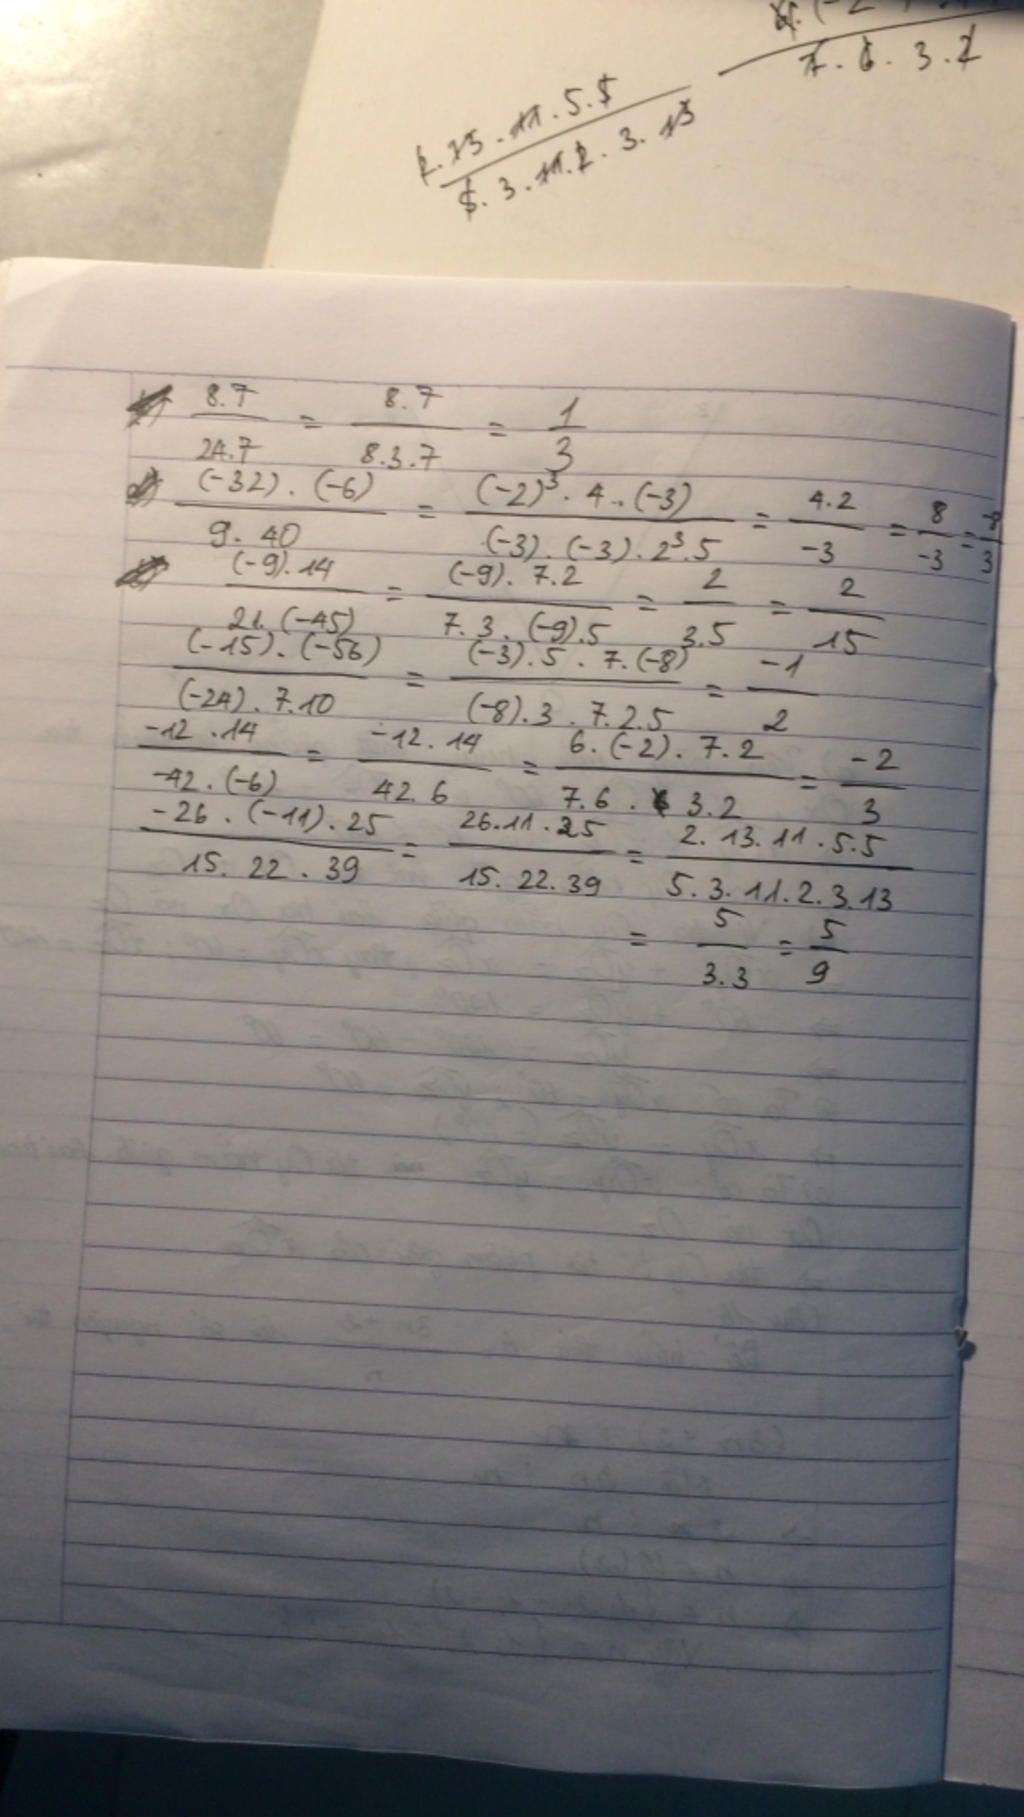 2.13.11.5.5 / 5.3.11.2.3.13
.3.2
8.7 / 24.7 = 8.7 / 8.3.7 = 1 / 3
(-32).(-6) / 9.40 = (-2)³.4.(-3) / (-3).(-3).2³.5 = 4.2 / -3 = 8 / -3 = -8 / 3
(-9).14 / 21.(-45) = (-9).7.2 / 7.3.(-9).5 = 2 / 3.5 = 2 / 15
(-15).(-56) / (-24).7.10 = (-3).5.7.(-8) / (-8).3.7.2.5 = -1 / 2
-12.14 / -42.(-6) = -12.14 / 42.6 = 6.(-2).7.2 / 7.6.3.2 = -2 / 3
-26.(-11).25 / 15.22.39 = 26.11.25 / 15.22.39 = 2.13.11.5.5 / 5.3.11.2.3.13
= 5 / 3.3 = 5 / 9